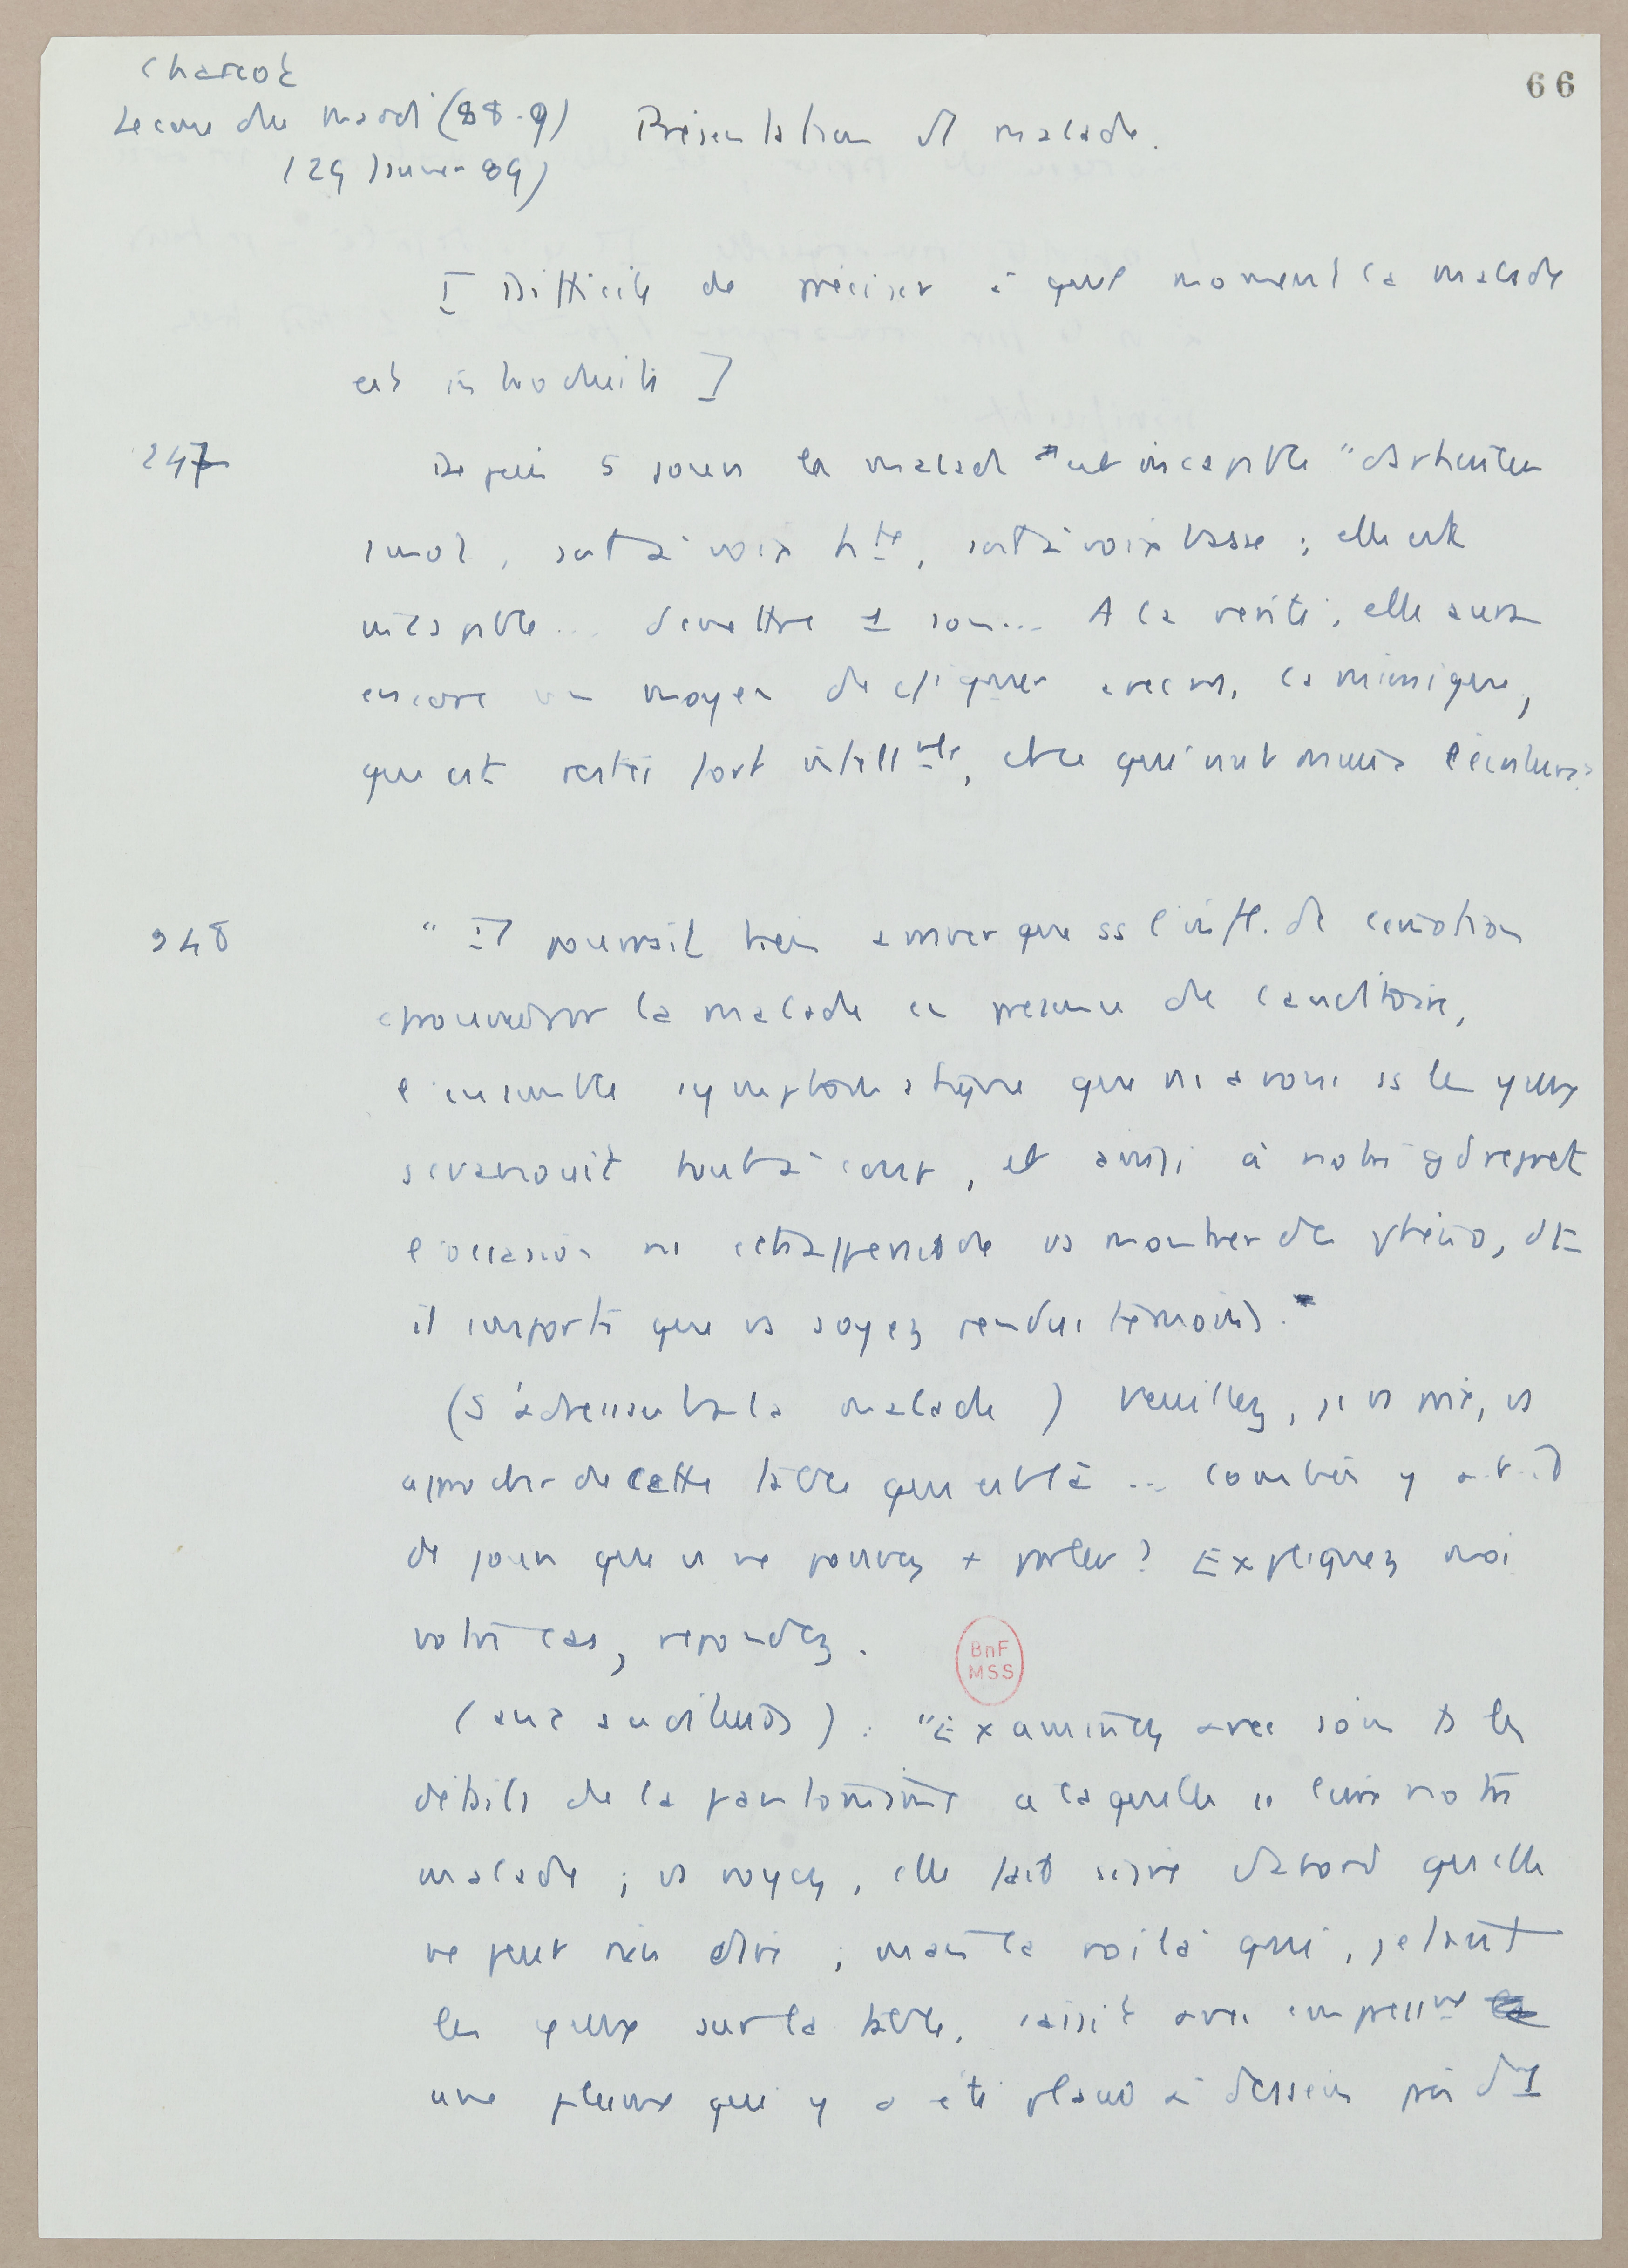 66
Charcot
Lecons du mardi (88-9) Présentation de malade.
(29 Janvier 89)
[Difficile de préciser à quel moment la malade
est introduite]
247 Depuis 5 jours la malade est incapable "d'articuler
1 mot, soit à voix hte, soit à voix basse ; elle est
incapable... d'emettre 1 son... A la verité, elle aura
encore un moyen de s'expliquer avec ns, la mimique,
qui est restée fort intellnte, et ce qui vaut mieux l'écriture
248 "Il pourrait bien arriver que ss l'infl. de l'émotion
la malade en presence de l'auditoire,
l'ensemble symptomatique que ns avons ss les yeux
s'evanouit tout à coup, et ainsi à notre gd regret
l'occasion ns echapperait de vs montrer des phéno, dt
il importe que vs soyez rendus témoins."
(S'adressant à la malade) Veuillez, je vs prie, vs
approcher de cette table qui est là... Combien y a-t-il
de jours que vs ne pouvez + parler ? Expliquez moi
votre cas, repondez.
BnF
MSS
(aux auditeurs) : "Examinez avec soin ts les
détails de la pantomime a laquelle se livre notre
malade ; vs voyez, elle fait signe d'abord qu'elle
ne peut rien dire ; mais la voilà qui, jetant
les yeux sur la table, saisit avec empressnt
une plume qui y a été placée à dessein près d'1